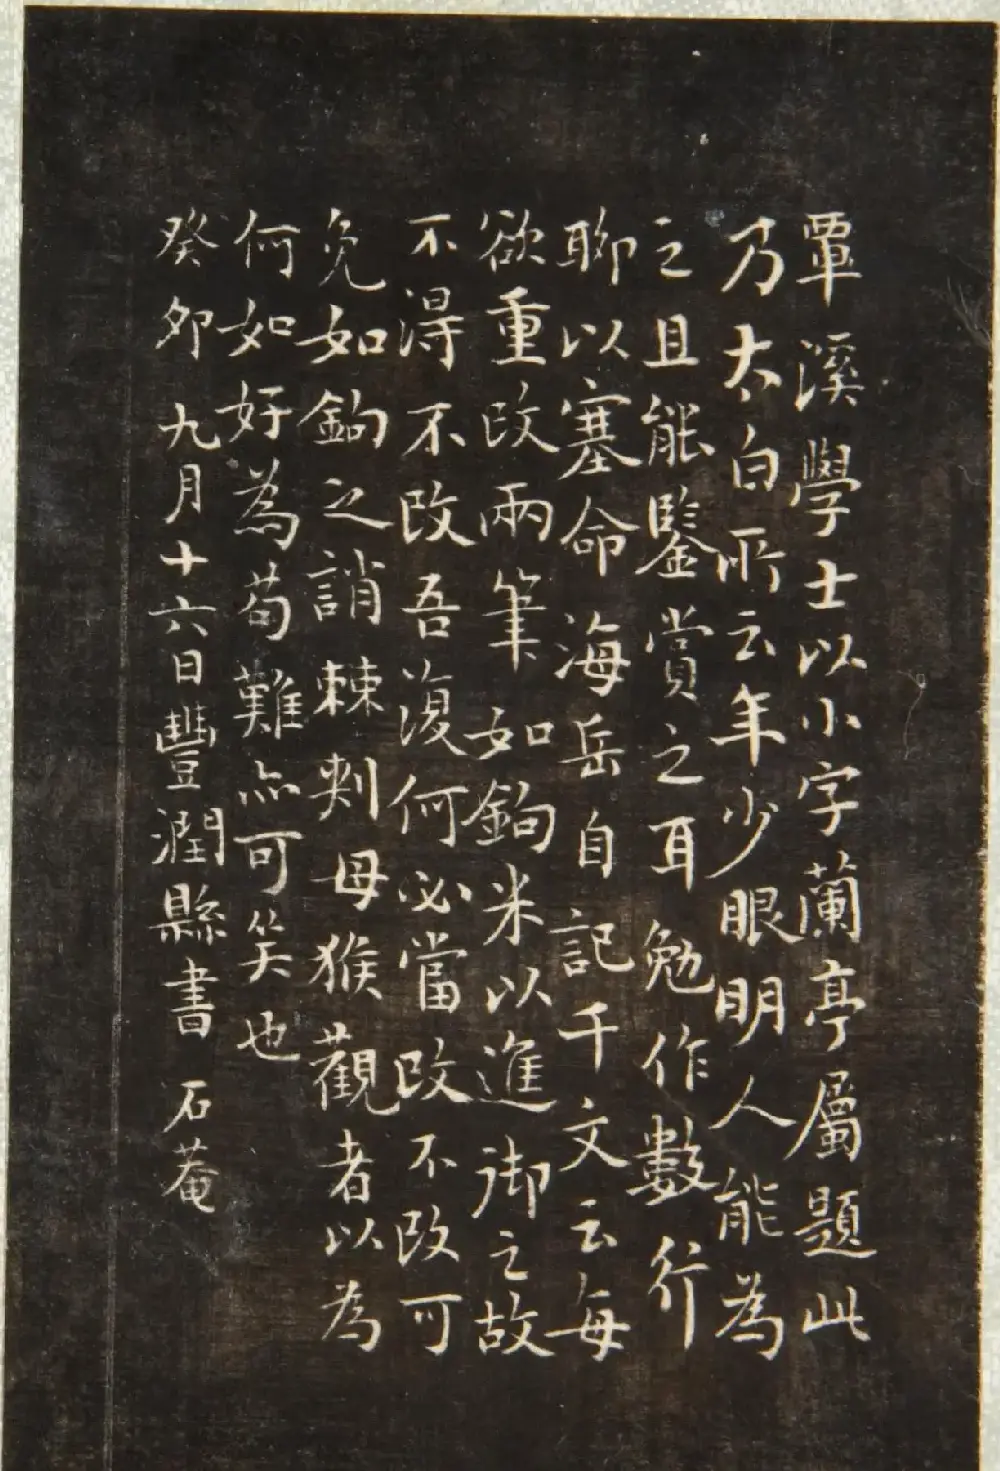 覃溪學士以小字蘭亭屬題此
乃太白所云年少眼明人能為
之且能鑒賞之耳勉作數行
聊以塞命海岳自記千文云每
欲重改兩筆如鉤米以進御之故
不得不改吾復何必當改不改可
免如鉤之誚棘刺母猴觀者以為
何如好為苟難亦可笑也
癸卯九月十六日豐潤縣書 石菴